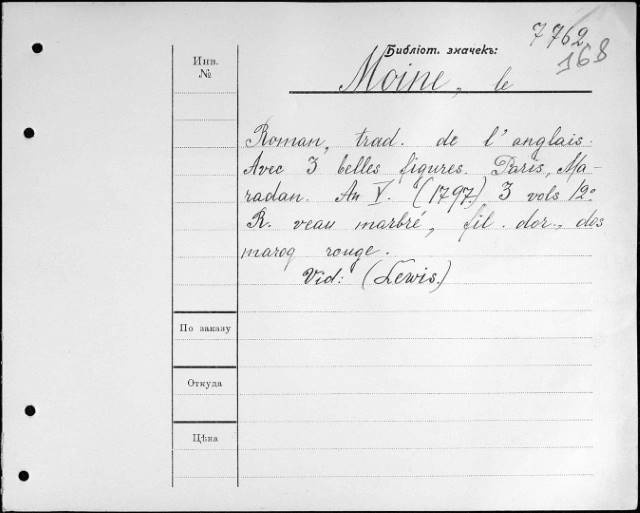 7762
168
Библіот. значекъ:
Инв.
№
Moine, le
Roman, trad. de l'anglais.
Avec 3 belles figures. Paris, Ma-
radan. An V. (1797.) 3 vols 12º
R. veau marbré, fil. dor., dos
maroq rouge.
Vid: (Lewis.)
По заказу
Откуда
Цѣна